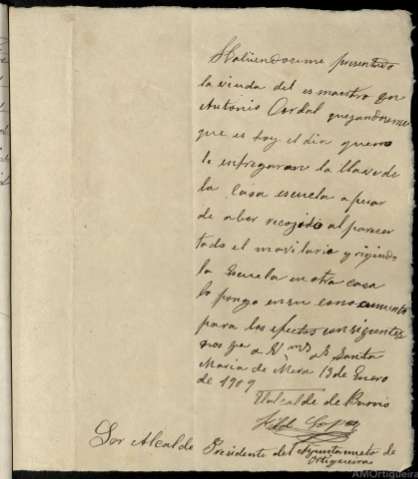 Haviendoseme presentado
la viuda del es maestro Don
Antonio Cordal quejandoseme
que es hoy el dia que no
le entregaran la llave de
la Casa escuela apesar
de aber recojido al parecer
todo el moviliario y rigiendo
la Escuela en otra casa
lo pongo en su conocumento
para los efectos consiguientes
Dios gue a V. ms as Santa
Maria de Mera 13 de Enero
de 1909
El alcalde de Barrio
Lopez
Sor Alcalde Presidente del Ayuntamieto de
Ortigueira
AMOrtigueira